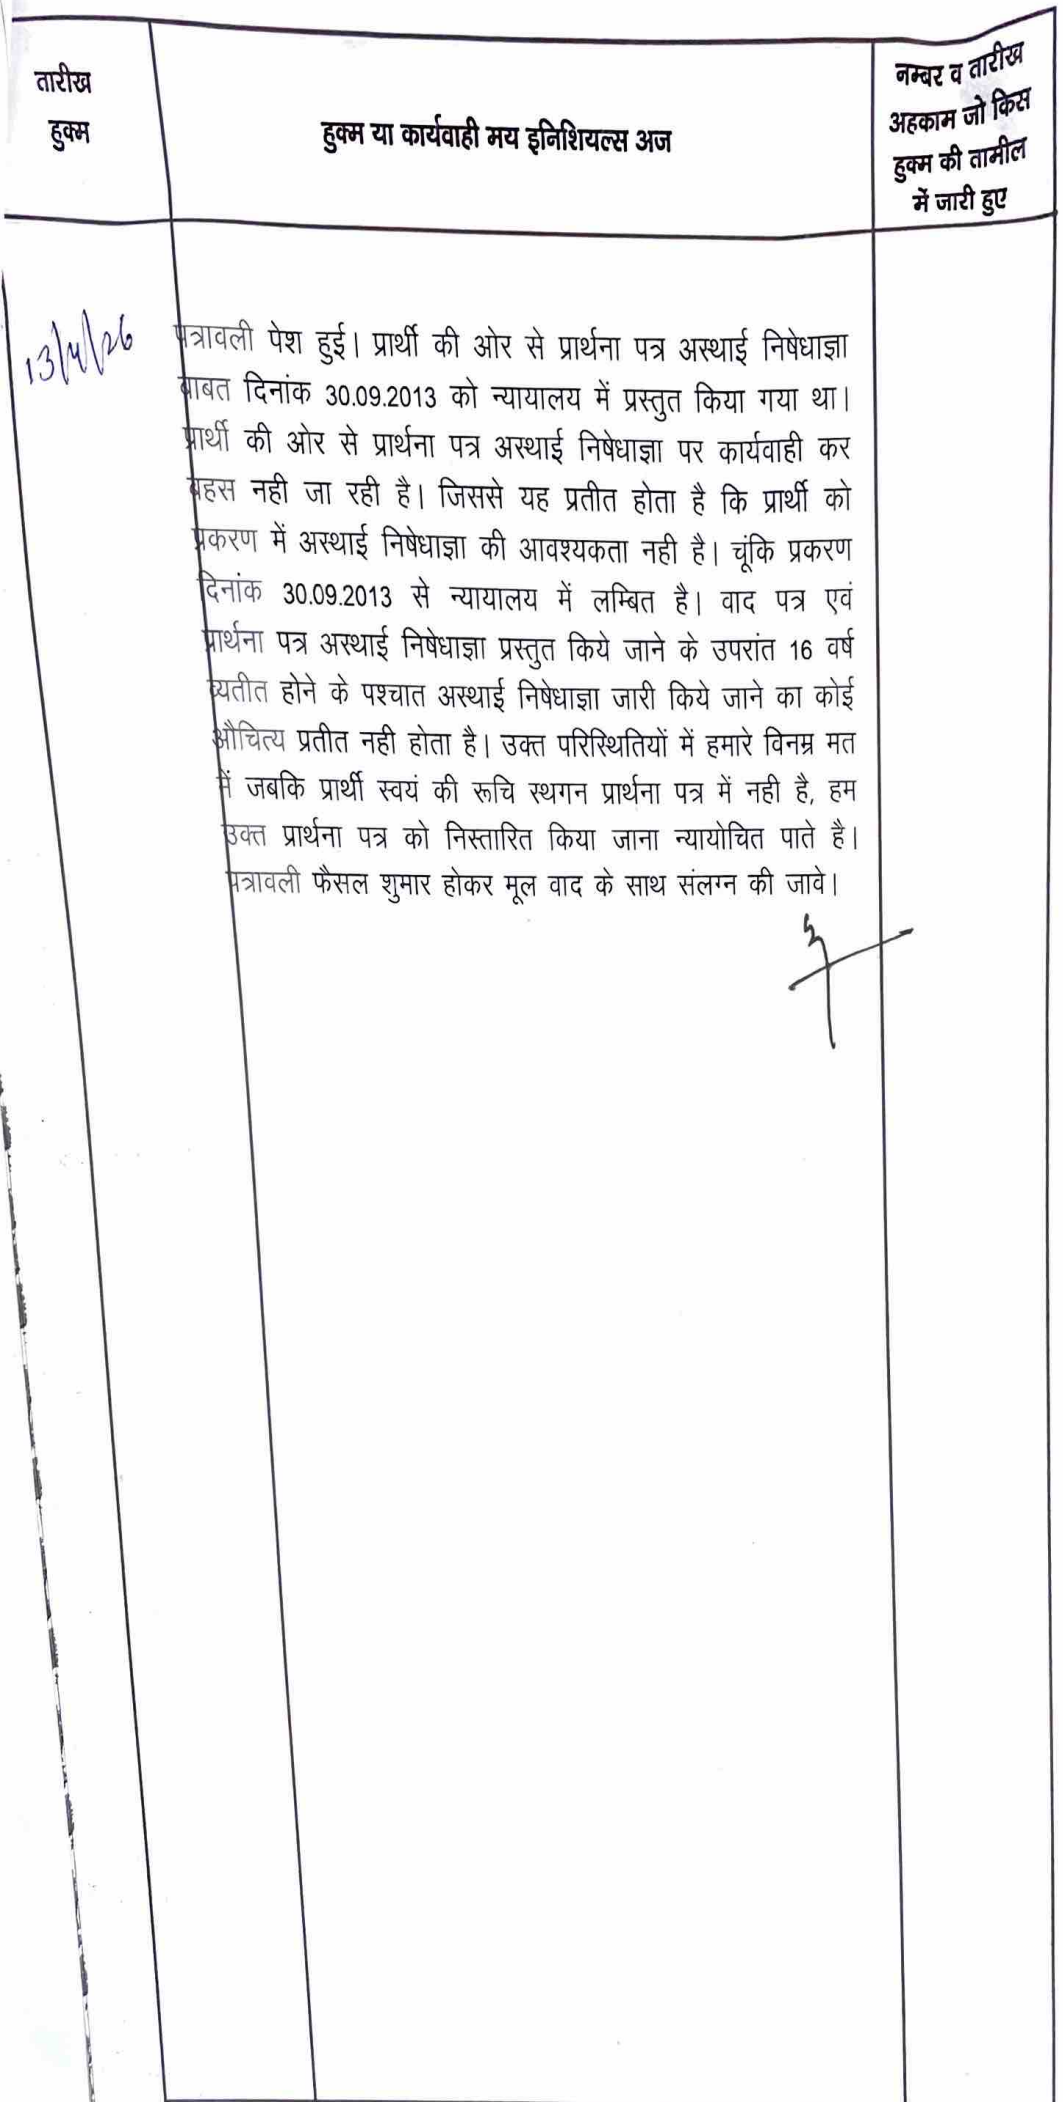 तारीख
हुक्म
हुक्म या कार्यवाही मय इनिशियल्स अज
नम्बर व तारीख
अहकाम जो किस
हुक्म की तामील
में जारी हुए
13/4/26
पत्रावली पेश हुई। प्रार्थी की ओर से प्रार्थना पत्र अस्थाई निषेधाज्ञा
बाबत दिनांक 30.09.2013 को न्यायालय में प्रस्तुत किया गया था।
प्रार्थी की ओर से प्रार्थना पत्र अस्थाई निषेधाज्ञा पर कार्यवाही कर
बहस नही जा रही है। जिससे यह प्रतीत होता है कि प्रार्थी को
प्रकरण में अस्थाई निषेधाज्ञा की आवश्यकता नही है। चूंकि प्रकरण
दिनांक 30.09.2013 से न्यायालय में लम्बित है। वाद पत्र एवं
प्रार्थना पत्र अस्थाई निषेधाज्ञा प्रस्तुत किये जाने के उपरांत 16 वर्ष
व्यतीत होने के पश्चात अस्थाई निषेधाज्ञा जारी किये जाने का कोई
औचित्य प्रतीत नही होता है। उक्त परिस्थितियों में हमारे विनम्र मत
में जबकि प्रार्थी स्वयं की रूचि स्थगन प्रार्थना पत्र में नही है, हम
उक्त प्रार्थना पत्र को निस्तारित किया जाना न्यायोचित पाते है।
पत्रावली फैसल शुमार होकर मूल वाद के साथ संलग्न की जावे।